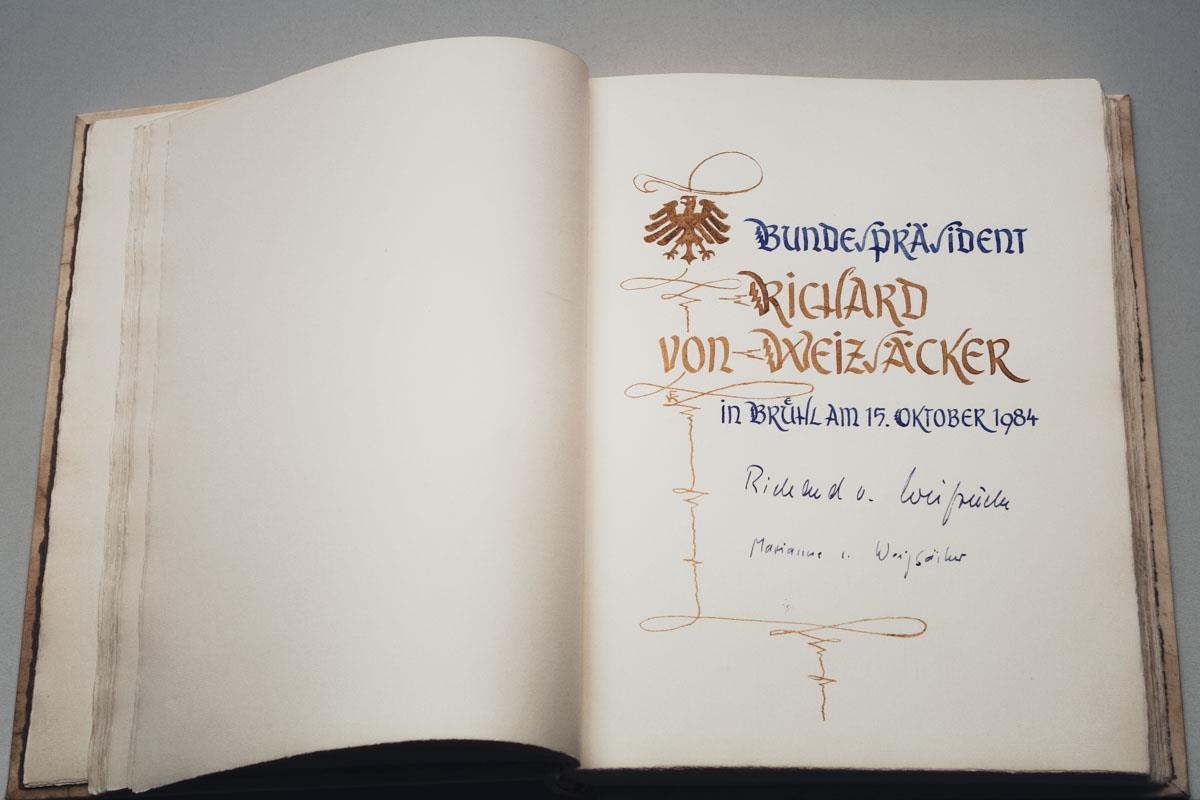 Bundespräsident
Richard
von Weizsäcker
in Brühl am 15. Oktober 1984
Richard v. Weizsäcker
Marianne v. Weizsäcker